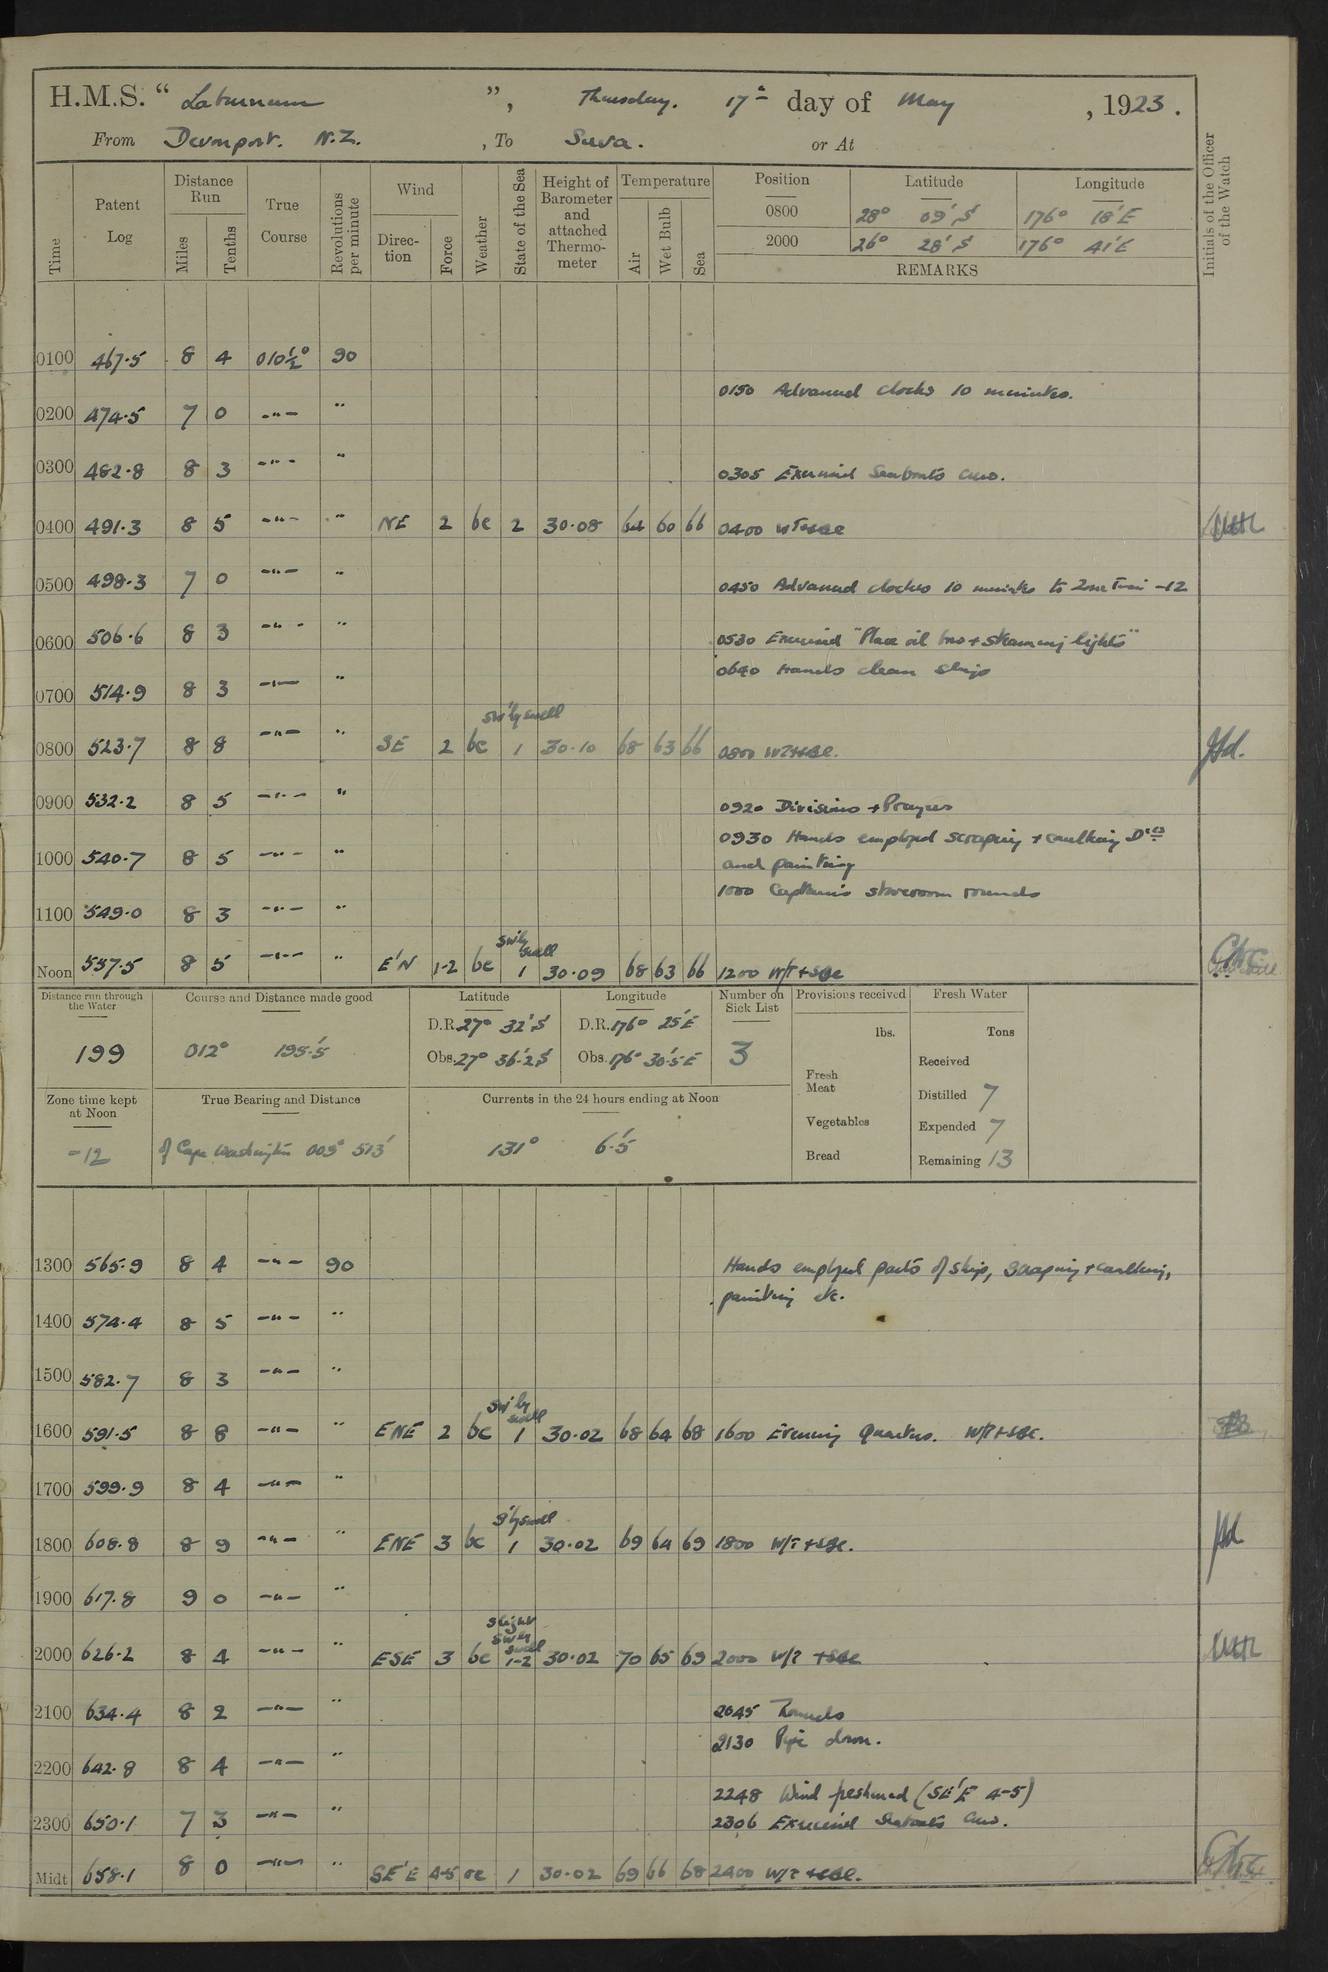 H.M.S. “ Laburnum ”, Thursday. 17th day of May , 1923 .
From Devonport. N.Z. , To Suva. or At
Time Patent Log Distance Run Miles Tenths True Course Revolutions per minute Wind Direction Force Weather State of the Sea Height of Barometer and attached Thermometer Temperature Air Wet Bulb Sea Position Latitude Longitude Initials of the Officer of the Watch
0800 28° 09' S 176° 18' E
2000 26° 28' S 176° 41' E
REMARKS
0100 467.5 8 4 010½° 90
0150 Advanced clocks 10 minutes.
0200 474.5 7 0 -"- "
0300 482.8 8 3 -"- " 0305 Exercised Seaboats crew.
0400 491.3 8 5 -"- " NE 2 bc 2 30.08 64 60 66 0400
0500 498.3 7 0 -"- " 0450 Advanced clocks 10 minutes to Zone Time -12
0600 506.6 8 3 -"- " 0530 Exercised "Place oil bow + steaming lights"
0640 Hands clean ship
0700 514.9 8 3 -"- "
sw'ly swell
0800 523.7 8 8 -"- " SE 2 bc 1 30.10 68 63 66 0800
0900 532.2 8 5 -"- " 0920 Divisions + Prayers
0930 Hands employed scraping + caulking D'cs
1000 540.7 8 5 -"- " and painting
1000 Captain's storeroom rounds
1100 549.0 8 3 -"- "
sw'ly swell
Noon 557.5 8 5 -"- " E'N 1-2 bc 1 30.09 68 63 66 1200 W/T + SBC
Distance run through the Water Course and Distance made good Latitude Longitude Number on Sick List Provisions received Fresh Water
D.R. 27° 32' S D.R. 176° 25' E lbs. Tons
199 012° 195.5' Obs. 27° 36'.2 S Obs. 176° 30'.5 E 3 Received
Fresh Meat
Zone time kept at Noon True Bearing and Distance Currents in the 24 hours ending at Noon Distilled 7
Vegetables Expended 7
-12 of Cape Washington 005° 513' 131° 6.5' Bread Remaining 13
1300 565.9 8 4 -"- 90 Hands employed parts of ship, scraping + caulking,
painting etc.
1400 574.4 8 5 -"- "
1500 582.7 8 3 -"- "
sw'ly swell
1600 591.5 8 8 -"- " ENE 2 bc 1 30.02 68 64 68 1600 Evening Quarters. W/T + SBC.
1700 599.9 8 4 -"- "
s'ly swell
1800 608.8 8 9 -"- " ENE 3 bc 1 30.02 69 64 69 1800 W/T + SBC.
1900 617.8 9 0 -"- "
slight sw'ly swell
2000 626.2 8 4 -"- " ESE 3 bc 1-2 30.02 70 65 69 2000 W/T + SBC
2100 634.4 8 2 -"- " 2045 Rounds
2130 Pipe down.
2200 642.8 8 4 -"- "
2248 Wind freshened (SE'E 4-5)
2300 650.1 7 3 -"- " 2306 Exercised Seaboats crew.
Midt 658.1 8 0 -"- " SE'E 4-5 1 30.02 69 66 68 2400 W/T + SBC.